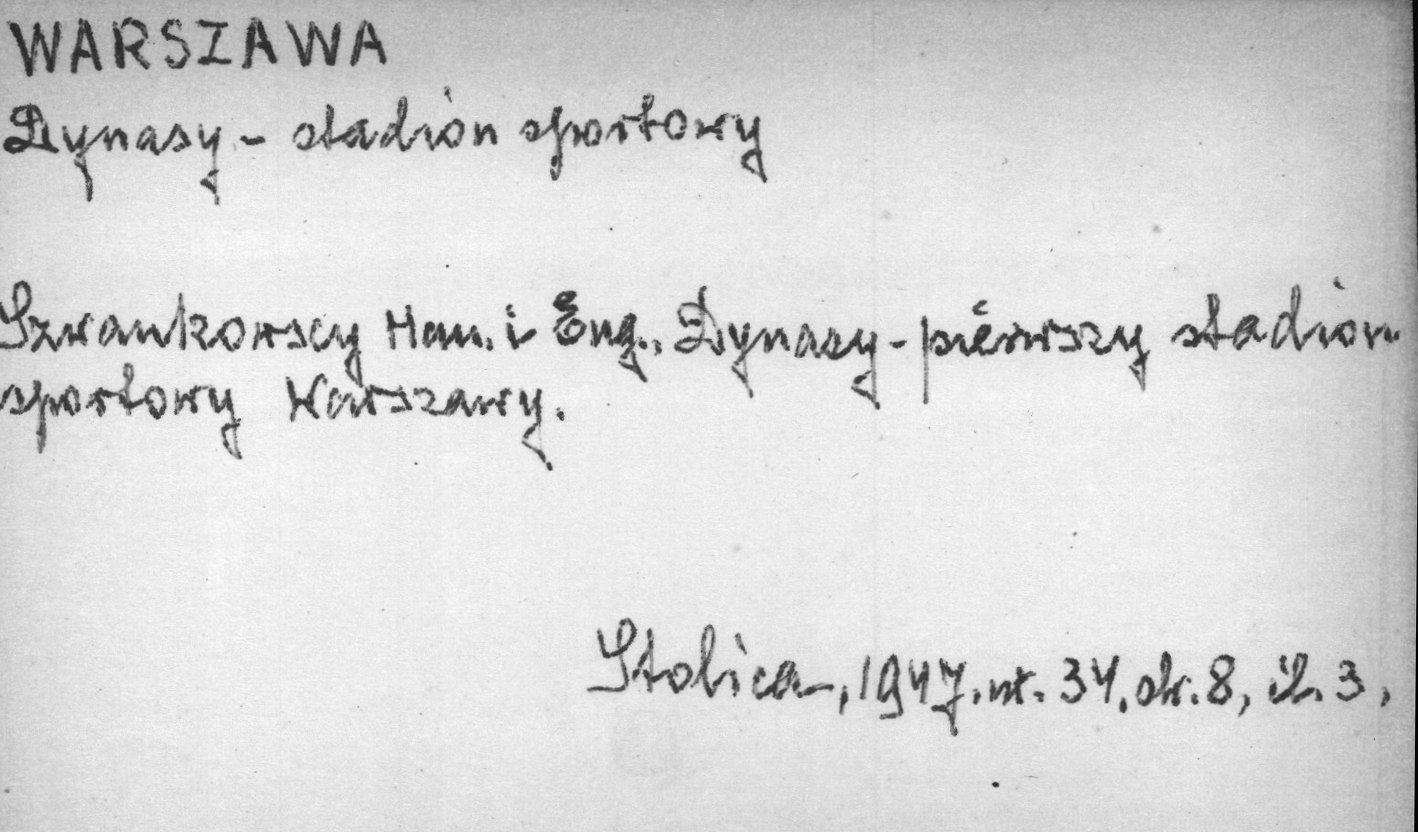 WARSZAWA
Dynasy - stadion sportowy
Szwankowscy Han. i Eug., Dynasy - pierwszy stadion
sportowy Warszawy.
Stolica, 1947. nr. 34. str. 8, il. 3,